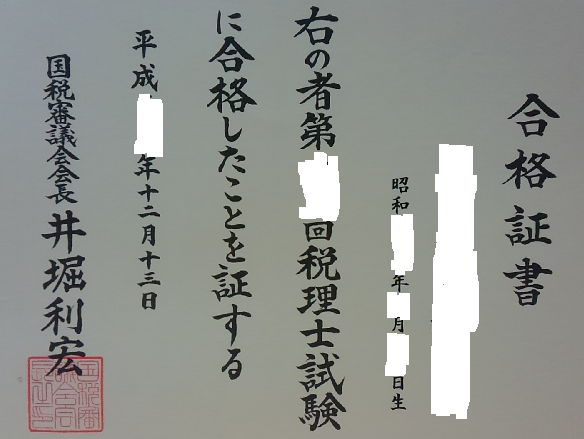 合格証書
昭和 年 月 日生
右の者第 回税理士試験
に合格したことを証する
平成 年十二月十三日
国税審議会会長 井堀利宏